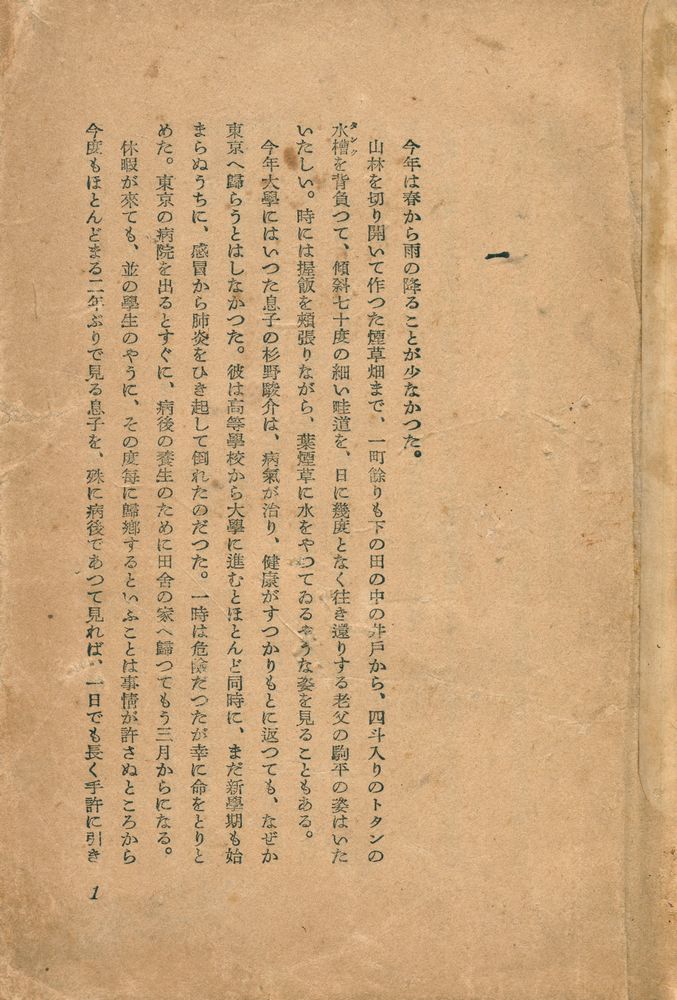 一
今年は春から雨の降ることが少なかつた。
山林を切り開いて作つた煙草畑まで、一町餘りも下の田の中の井戸から、四斗入りのトタンの
水槽を背負つて、傾斜七十度の細い畦道を、日に幾度となく往き還りする老父の駒平の姿はいた
タンク
いたしい。時には握飯を頰張りながら、葉煙草に水をやつてゐるやうな姿を見ることもある。
今年大學にはいつた息子の杉野駿介は、病氣が治り、健康がすつかりもとに返つても、なぜか
東京へ歸らうとはしなかつた。彼は高等學校から大學に進むとほとんど同時に、まだ新學期も始
まらぬうちに、感冒から肺炎をひき起して倒れたのだつた。一時は危險だつたが幸に命をとりと
めた。東京の病院を出るとすぐに、病後の養生のために田舍の家へ歸つてもう三月からになる。
休暇が來ても、並の學生のやうに、その度每に歸鄕するといふことは事情が許さぬところから
今度もほとんどまる二年ぶりで見る息子を、殊に病後であつて見れば、一日でも長く手許に引き
1